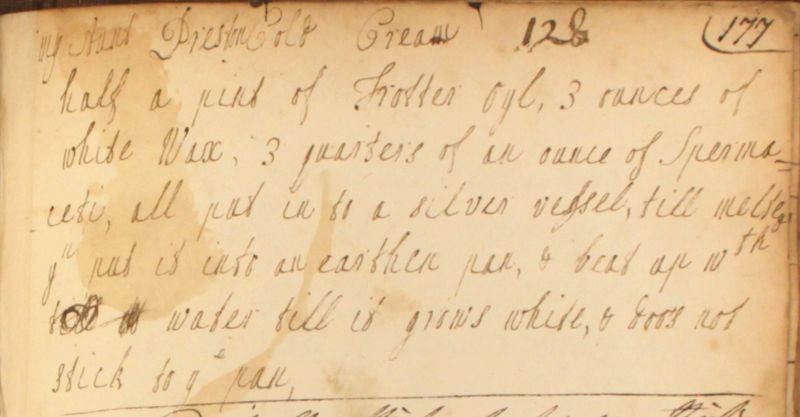 my Aunt Preston Cold Cream 128 177
half a pint of Trotter oyl, 3 ounces of
white Wax, 3 quarters of an ounce of Sperma=
-ceti, all put in to a silver vessel, till melted
yn put it into an earthen pan, & beat up wth
water till it grows white, & doos not
stick to ye pan,